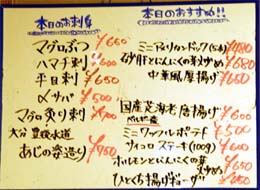 本日のお刺身
マグロぶつ ¥600
ハマチ刺 ¥600
平目刺 ¥650
〆サバ ¥500
マグロ炙り刺 ¥700
大分 豊後水道
あじの姿造り ¥750
本日のおすすめ!!
ミニアメリカンドック(5本) ¥480
砂肝とにんにくの芽炒め ¥680
中華風厚揚げ ¥650
国産芝海老唐揚げ ¥600
ミニワッフルポテト ¥500
サイコロステーキ(100g) ¥600
ホルモンとにんにくの芽
炒め ¥650
ひとくち揚げギョーザ